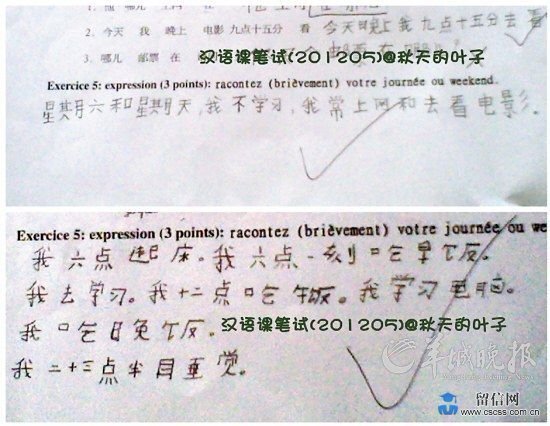 2. 今天 我 晚上 电影 九点十五分 看 今天晚上我九点十五分去看
3. 哪儿 邮票 在
汉语课笔试(201205)@秋天的叶子
Exercice 5: expression (3 points): racontez (brièvement) votre journée ou weekend.
星期六和星期天,我不学习,我常上网和去看电影.
Exercice 5: expression (3 points): racontez (brièvement) votre journée ou we
我六点起床。我六点一刻吃早饭。
我去学习。我十二点吃午饭。我学习电脑。
我吃晚饭。
汉语课笔试(201205)@秋天的叶子
我二十三点半目垂觉。
羊城晚报
留信网
www.cscss.com.cn